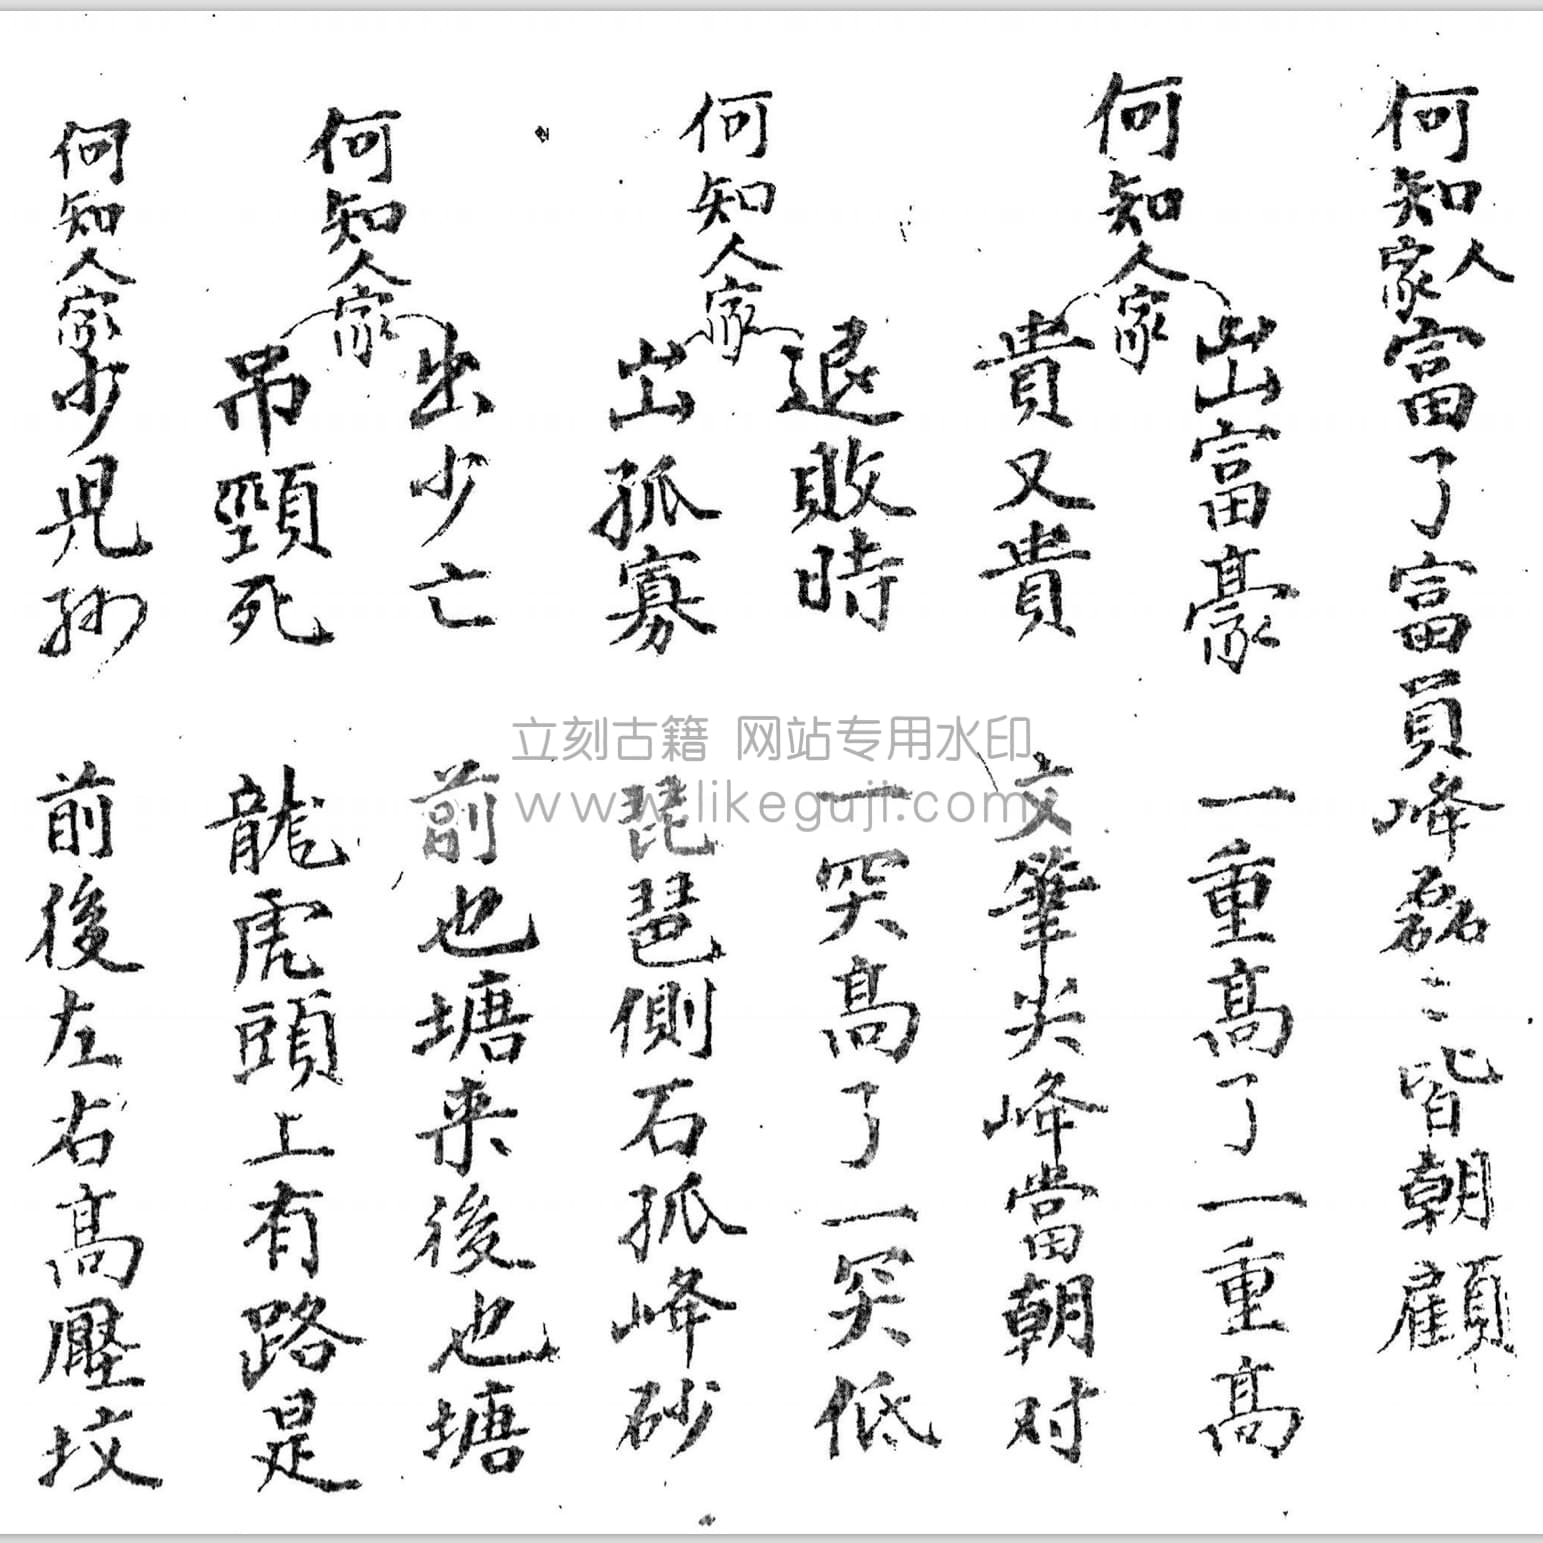 何知人家富了富員峰磊〻皆朝顧
何知人家
出富豪 一重高了一重高
貴又貴 文筆尖峰當朝对
何知人家
退敗時 一突高了一突低
出孤寡 琵琶側石孤峰砂
何知人家
出少亡 前也塘来後也塘
吊頸死 龍虎頭上有路是
何知人家少児孫 前後左右高壓坟
立刻古籍 网站专用水印
www.likeguji.com